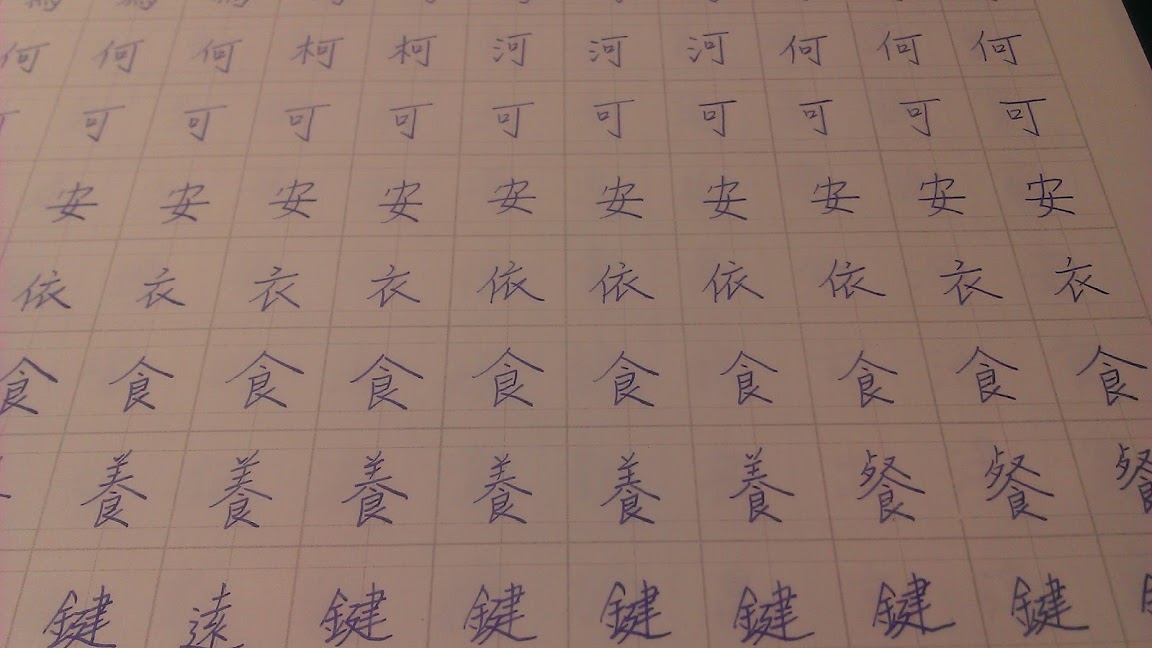 何何何柯柯河河河何何何
可可可可可可可可可可
安安安安安安安安安安
依衣衣衣依依依依衣衣
食食食食食食食食食食
養養養養養養餐餐餐
鍵遠鍵鍵鍵鍵鍵鍵